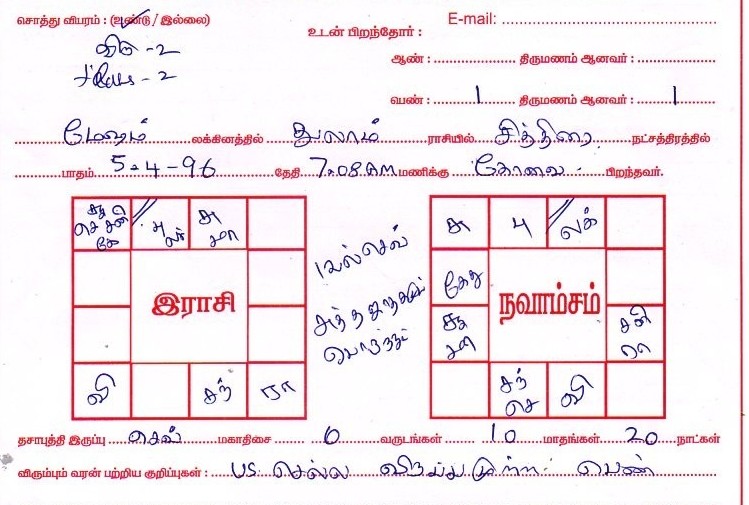 சொத்து விபரம் : (உண்டு / இல்லை)
வீடு - 2
- 2
E-mail:
உடன் பிறந்தோர் :
ஆண் : திருமணம் ஆனவர் :
பெண் : 1 திருமணம் ஆனவர் : 1
மேஷம் லக்கினத்தில் துலாம் ராசியில் சித்திரை நட்சத்திரத்தில்
பாதம் 5-4-96 தேதி 7.08 AM மணிக்கு கோவை பிறந்தவர்.
சூ
செ சனி
கே
பு
லக்
சு
மா
இராசி
வி
சந்
ரா
சுத்த ஜாதகம்
சு
பு
லக்
கேது
சூ
மா
நவாம்சம்
சனி
ரா
சந்
செ
வி
தசாபுத்தி இருப்பு செவ் மகாதிசை 0 வருடங்கள் 10 மாதங்கள் 20 நாட்கள்
விரும்பும் வரன் பற்றிய குறிப்புகள் : US செல்ல விருப்பமுள்ள பெண்